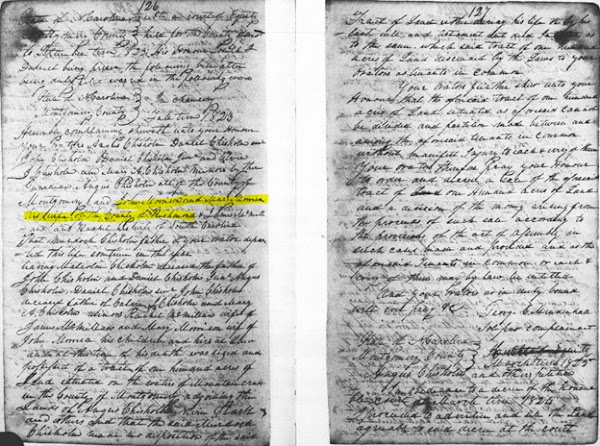 126
State of N Carolina
Montgomery County
term 1823 His Honour
Daniel being present the following
being duly
State of N Carolina In Chancery
Montgomery County Fall term 1823
Humbly complaining sheweth unto your Honour
your Orators Angus Chisholm Daniel Chisholm
John Chisholm Daniel Chisholm Junr and
J Chisholm and Mary A. Chisholm minors by their
Guardian Angus Chisholm all of the County of
Montgomery and John Morrison and Mary Morrison
his wife of the County of Richmond
and Rachel his wife of South Carolina
That Murdoch Chisholm father of your orators depar
ted this life sometime in the year
leaving Malcolm Chisholm deceased the father of
John Chisholm and Daniel Chisholm Junr Angus
Chisholm Daniel Chisholm Senr John Chisholm
deceased father of and Mary
A. Chisholm minors Rachel McMillan wife of
James McMillan and Mary Morrison wife of
John Morrison his children and heirs at Law
and at the time of his death was seized and
possessed of a tract of one hundred acres of
Land situated on the waters of Mountain creek
in the County of Montgomery adjoining the
Lands of Angus Chisholm
and others And that the said Murdoch
Chisholm made no disposition of the said
127
Tract of Land either during his life or by his
last will and testament but died Intestate as
to the same which said tract of one hundred
acres of Land descended by the Laws to your
Orators as tenants in common
Your Orators further shew unto your
Honour that the aforesaid tract of one hundred
acres of Land situated as aforesaid cannot
be divided and partition made between and
among the aforesaid tenants in common
without manifest Injury to each & every of them
Your Orators therefore Pray your Honour
To order and decree a sale of the aforesaid
tract of Land one hundred acres of Land
and a division of the money arising from
the proceeds of such sale according to
the provisions of the act of assembly in
such cases made and provided and as the
aforesaid Tenants in common or each &
every of them may by law be entitled
And your Orators as in duty bound
will ever pray &c
Sol for complainant
State of N Carolina
Montgomery County March term 1825
Angus Chisholm and others petition
In obedience to a decree of the Honorable
March term 1824
I proceeded to advertise and sell the Land
agreeable to said decree of the court